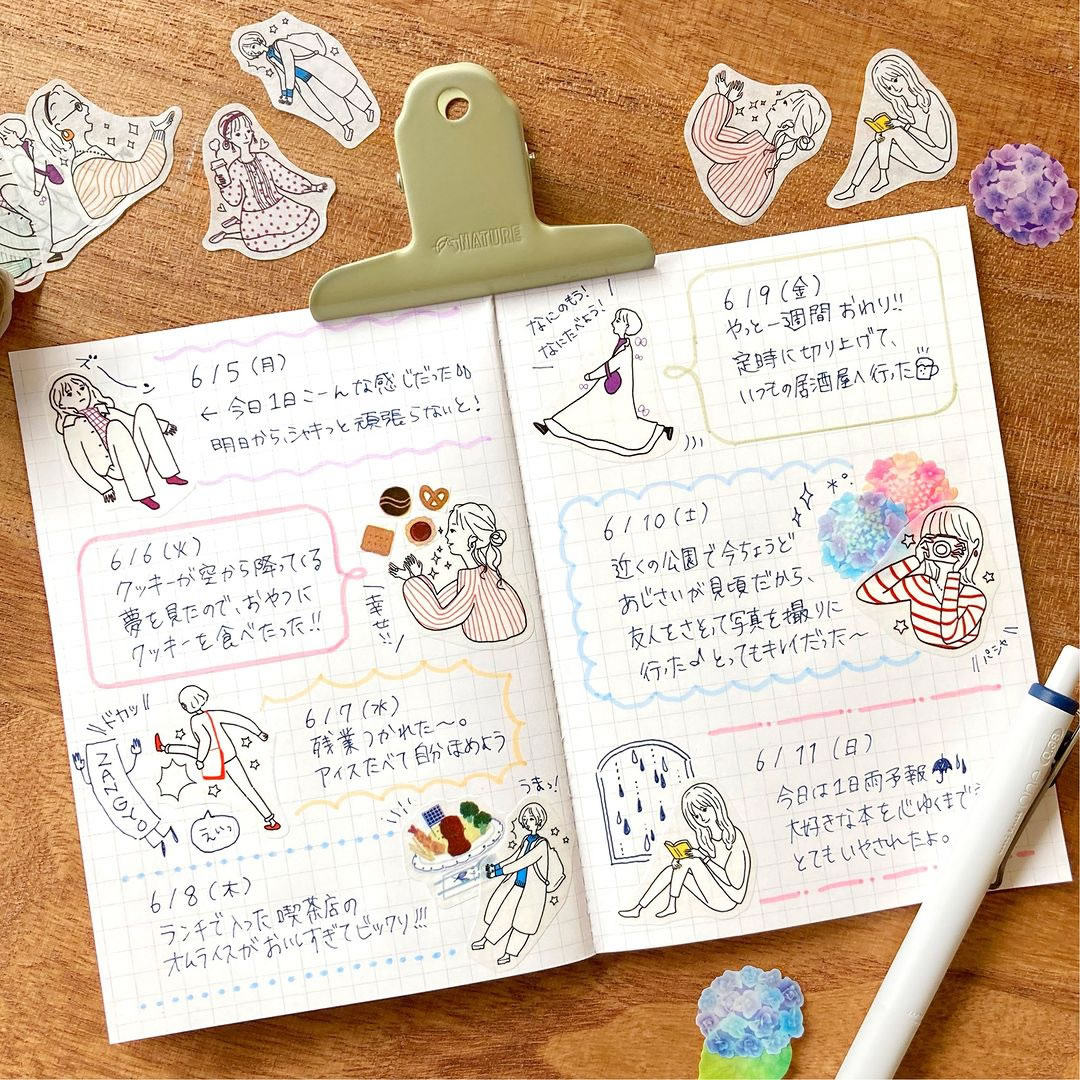 NATURE
ズーン
6/5(月)
← 今日1日こーんな感じだった
明日から、シャキっと頑張らないと!
6/6(火)
クッキーが空から降ってくる
夢を見たので、おやつに
クッキーを食べたった!!
幸せ…
ドヤッ
ZANGYO
えいっ
6/7(水)
残業つかれた〜。
アイスたべて自分ほめよう
うまっ!
6/8(木)
ランチで入った喫茶店の
オムライスがおいしすぎてビックリ!!!
なにのもう!
なにたべよう!
6/9(金)
やっと一週間おわり!!
定時に切り上げて、
いつもの居酒屋へ行った
6/10(土)
近くの公園で今ちょうど
あじさいが見頃だから、
友人をさそって写真を撮りに
行った♪とってもキレイだった〜
パシャ
6/11(日)
今日は1日雨予報
大好きな本を心ゆくまで
とてもいやされたよ。